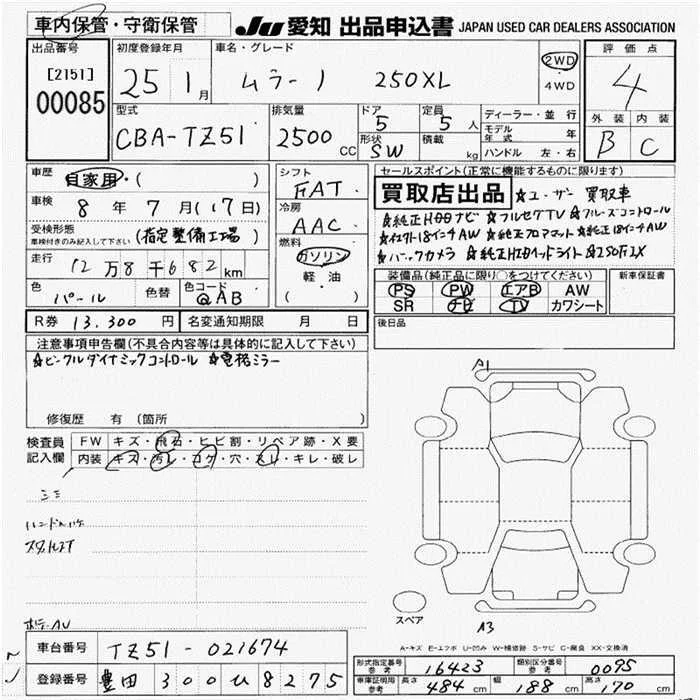 車内保管・守衛保管 JU 愛知 出品申込書 JAPAN USED CAR DEALERS ASSOCIATION
出品番号 初度登録年月 車名・グレード 評価点
[2151] 25 1月 ムラーノ 250XL 2WD 4
00085 4WD
型式 排気量 ドア 定員 ディーラー・並行 外装 内装
CBA-TZ51 2500CC 5 5人 モデル年式 年 B C
形状 積載 ハンドル 左・右
SW kg
車歴 自家用・( ) シフト セールスポイント(正常に機能するものに限り)
FAT 買取店出品 ☆ユーザー買取車
車検 8年7月(17日) 冷房 ☆純正HDDナビ ☆フルセグTV ☆クルーズコントロール
受検形態 AAC ☆純正18インチAW ☆純正フロアマット ☆純正18インチAW
車検付きのみ記入して下さい (指定整備工場) 燃料 ☆バックカメラ ☆純正HIDヘッドライト
走行 12万8千682km ガソリン 装備品(純正品に限り○をつけてください) 新車保証書
色 色替 色コード 軽・油 PS PW エアB AW
パール QAB ( ) SR ナビ TV カワシート
R券 13.300円 名変通知期限 月 日 後日品
注意事項申告欄(不具合内容等は具体的に記入して下さい)
☆ビークルダイナミックコントロール ☆電格ミラー
A1
修復歴 有 (箇所 )
検査員 FW キズ・飛石・ヒビ割・リペア跡・X要
記入欄 内装 キズ・汚レ・コゲ・穴・スレ・キレ・破レ
シミ
スペア A3
A-キズ E-エクボ U-凹み W-補修跡 S-サビ C-腐食 XX-交換済
車台番号 TZ51-021674 形式指定番号 参考 16423 類別区分番号 参考 0095
登録番号 豊田 300 ひ 8275 車庫証明用 参考 長さ 484cm 幅 188cm 高さ 170cm